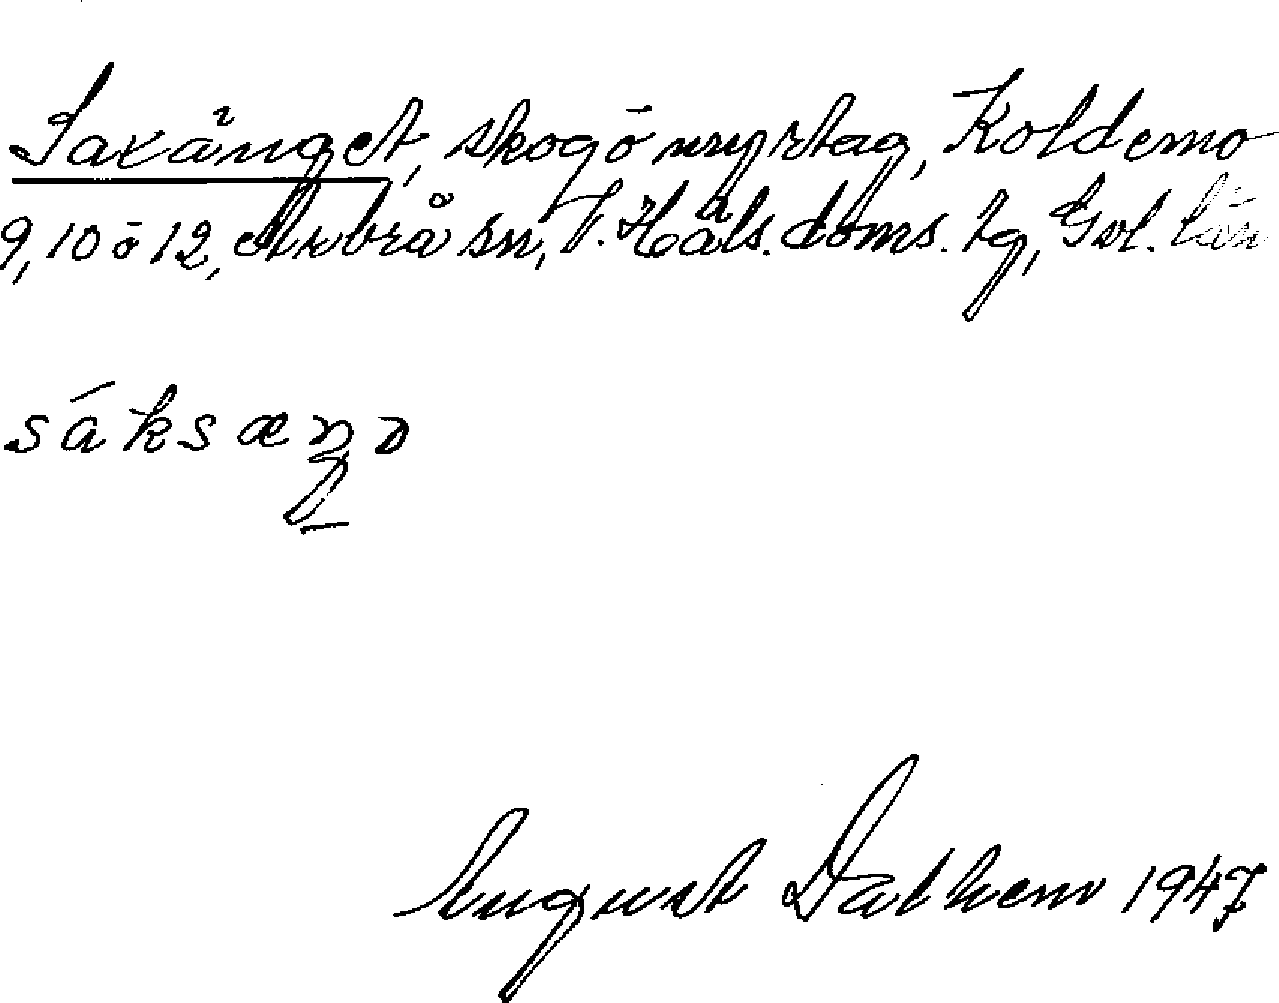 Saxänget, skog ō nyrtag, Koldemo
9, 10 ō 12, Arbrå sn, V. Häls. doms. tg, Gvl. län
August Dalhem 1947